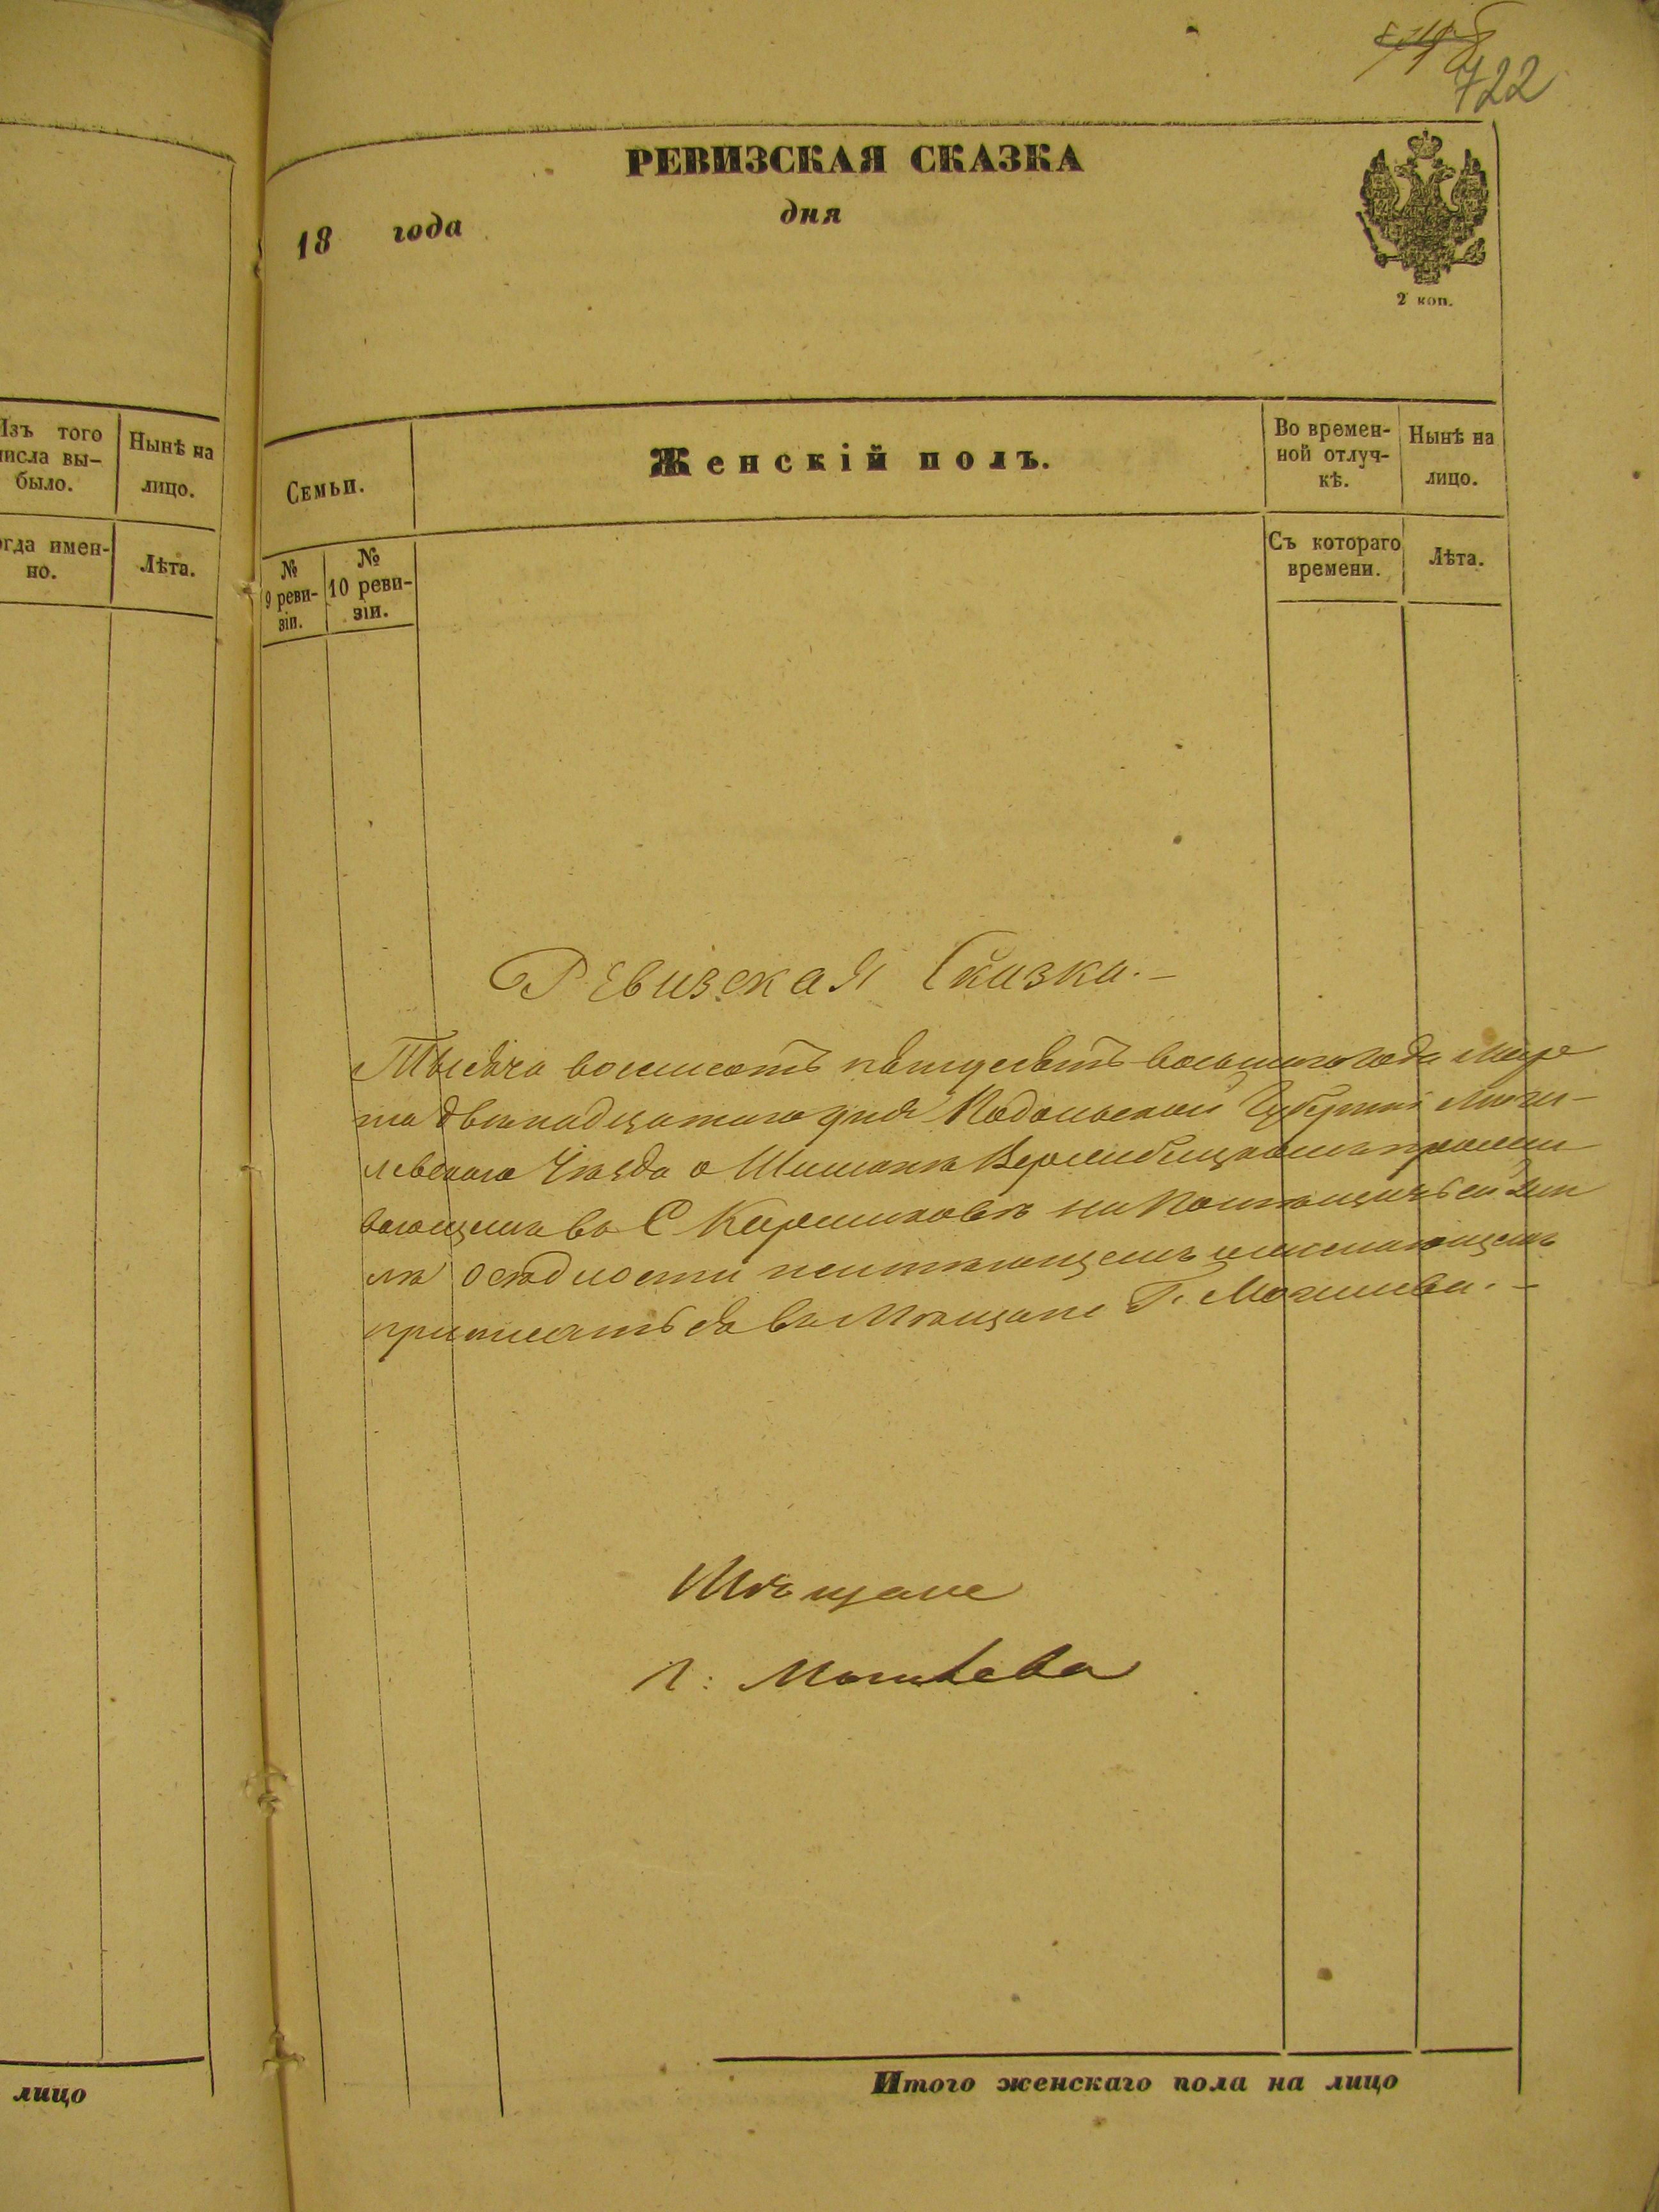 722
РЕВИЗСКАЯ СКАЗКА
18 года дня
2 коп.
Изъ того числа вы-
было.
Нынѣ на
лицо.
Когда имен-
но.
Лѣта.
лицо
Семьи.
Женскій полъ.
Во времен-
ной отлуч-
кѣ.
Нынѣ на
лицо.
№
9 реви-
зіи.
№
10 реви-
зіи.
Съ котораго
времени.
Лѣта.
Ревизская Сказка.—
Тысяча восемсотъ пятдесятъ восьмаго года Мар
та двенадцатаго дня Подольской Губерніи Моги-
левскаго Уѣзда о Шимонѣ прожи
вающемъ въ С на
осѣдлости неимѣющемъ и желающемъ
приписатьса въ Мѣщане Г. Могилева.—
Мѣщане
г: Могилева
Итого женскаго пола на лицо